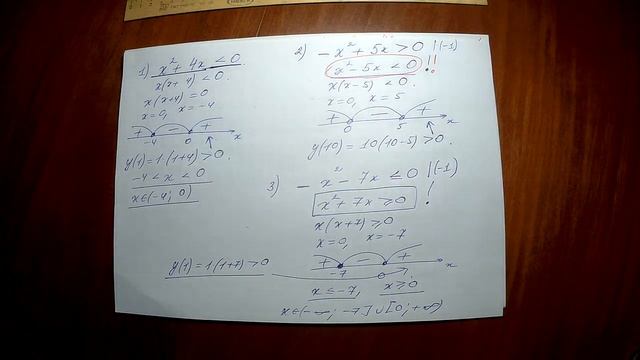 1) x² + 4x < 0
x(x+4) < 0.
x(x+4) = 0
x=0, x=-4
+ - +
-4 0 x
y(1)=1·(1+4)>0.
-4 < x < 0
x∈(-4; 0)
2) -x² + 5x > 0 |(-1)
x² - 5x < 0 !!
x(x-5) < 0.
x=0, x=5
+ - +
0 5 x
y(10)=10(10-5)>0.
3) -x² - 7x ≤ 0 |(-1)
x² + 7x ≥ 0 !
x(x+7) ≥ 0
x=0, x=-7
+ - +
-7 0 x
y(1)=1(1+7)>0
x≤-7, x≥0
x∈(-∞; -7]∪[0; +∞)